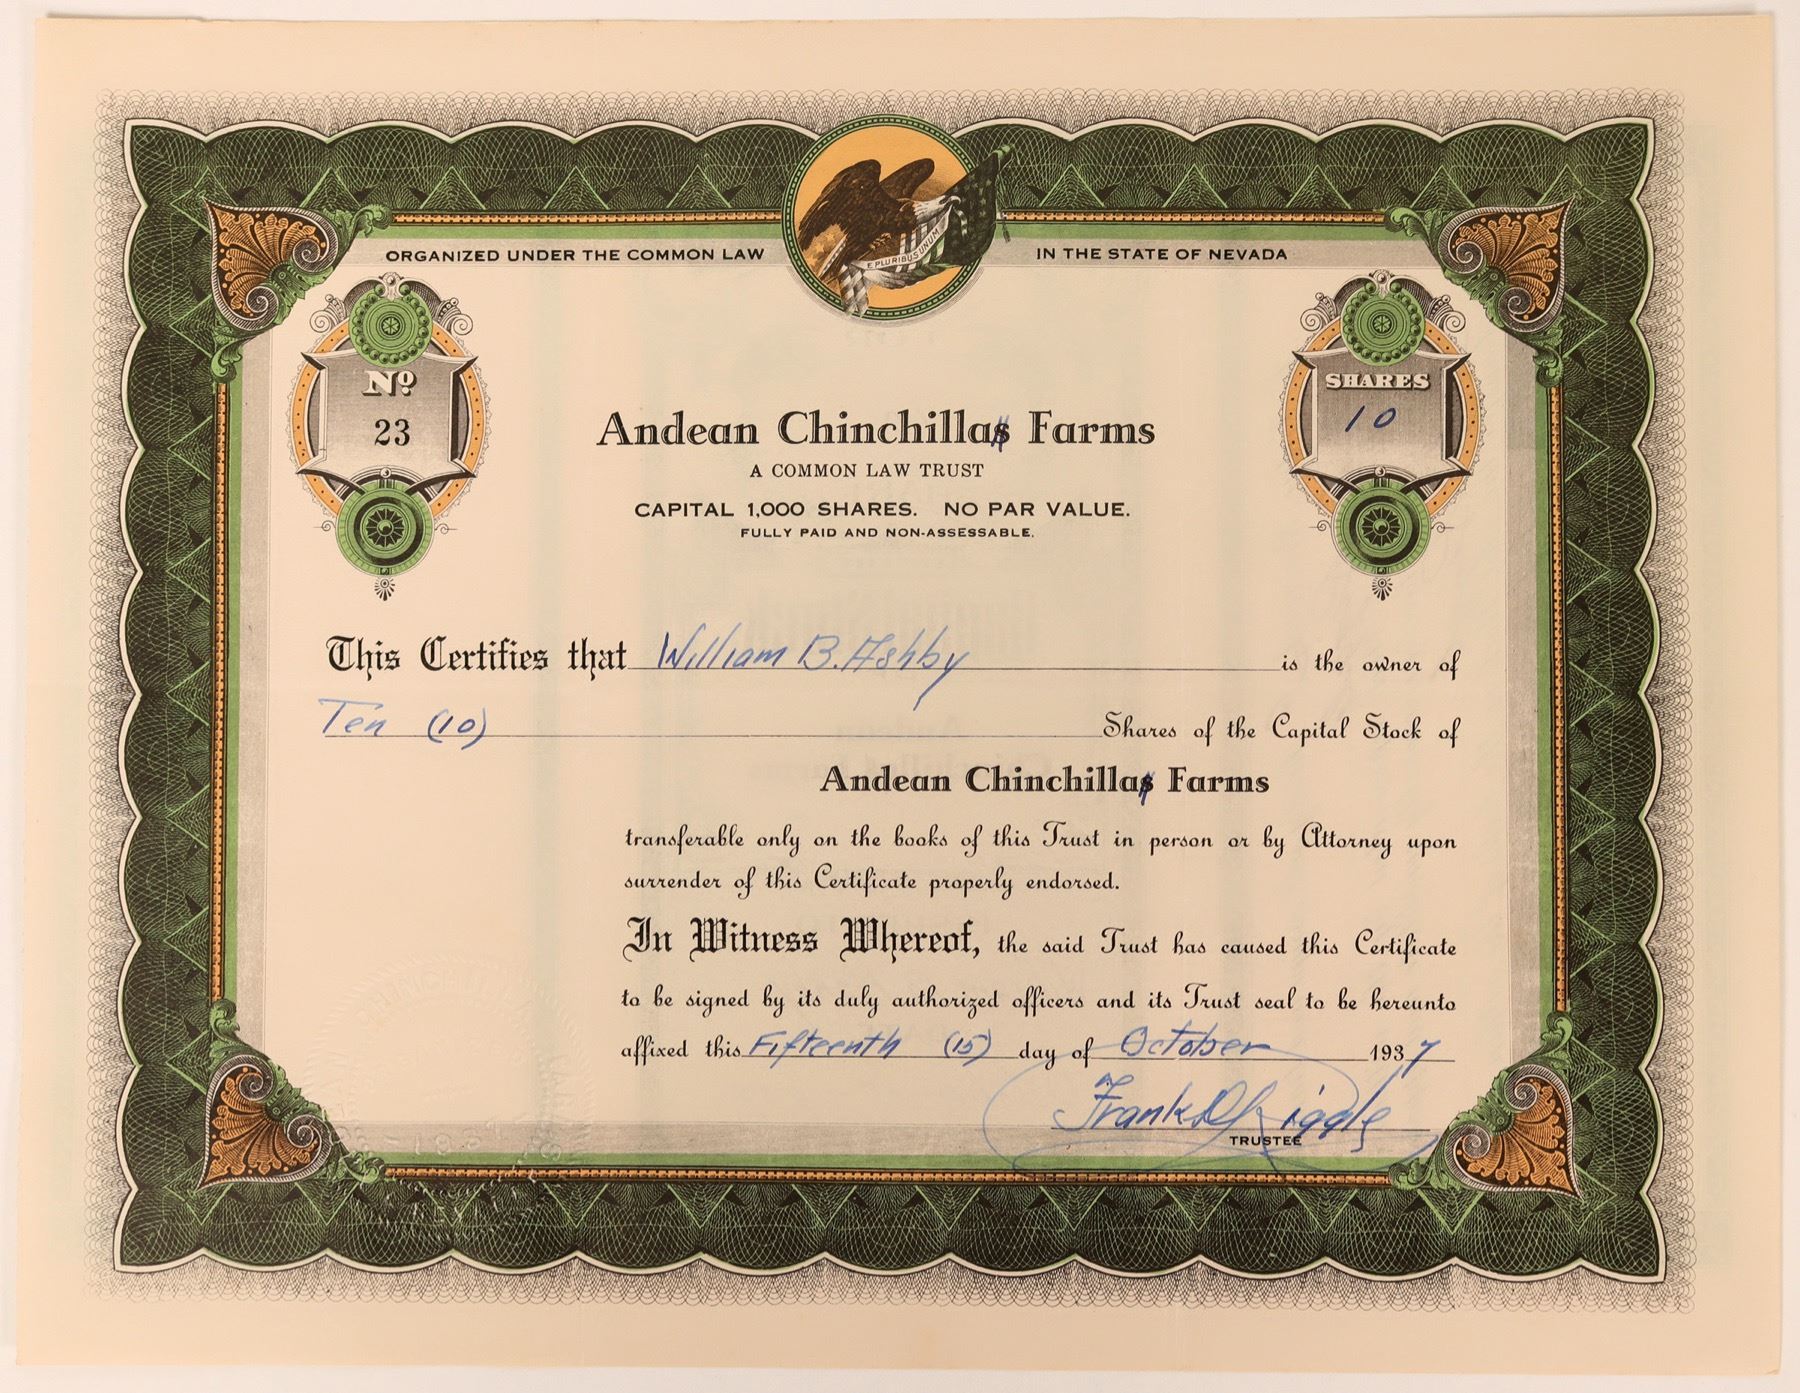 ORGANIZED UNDER THE COMMON LAW IN THE STATE OF NEVADA
E PLURIBUS UNUM
No
23
SHARES
10
Andean Chinchillas Farms
A COMMON LAW TRUST
CAPITAL 1,000 SHARES. NO PAR VALUE.
FULLY PAID AND NON-ASSESSABLE.
This Certifies that William B. Ashby is the owner of
Ten (10) Shares of the Capital Stock of
Andean Chinchillas Farms
transferable only on the books of this Trust in person or by Attorney upon
surrender of this Certificate properly endorsed.
In Witness Whereof, the said Trust has caused this Certificate
to be signed by its duly authorized officers and its Trust seal to be hereunto
affixed this Fifteenth (15) day of October 1937
Frank D. Riggle
TRUSTEE